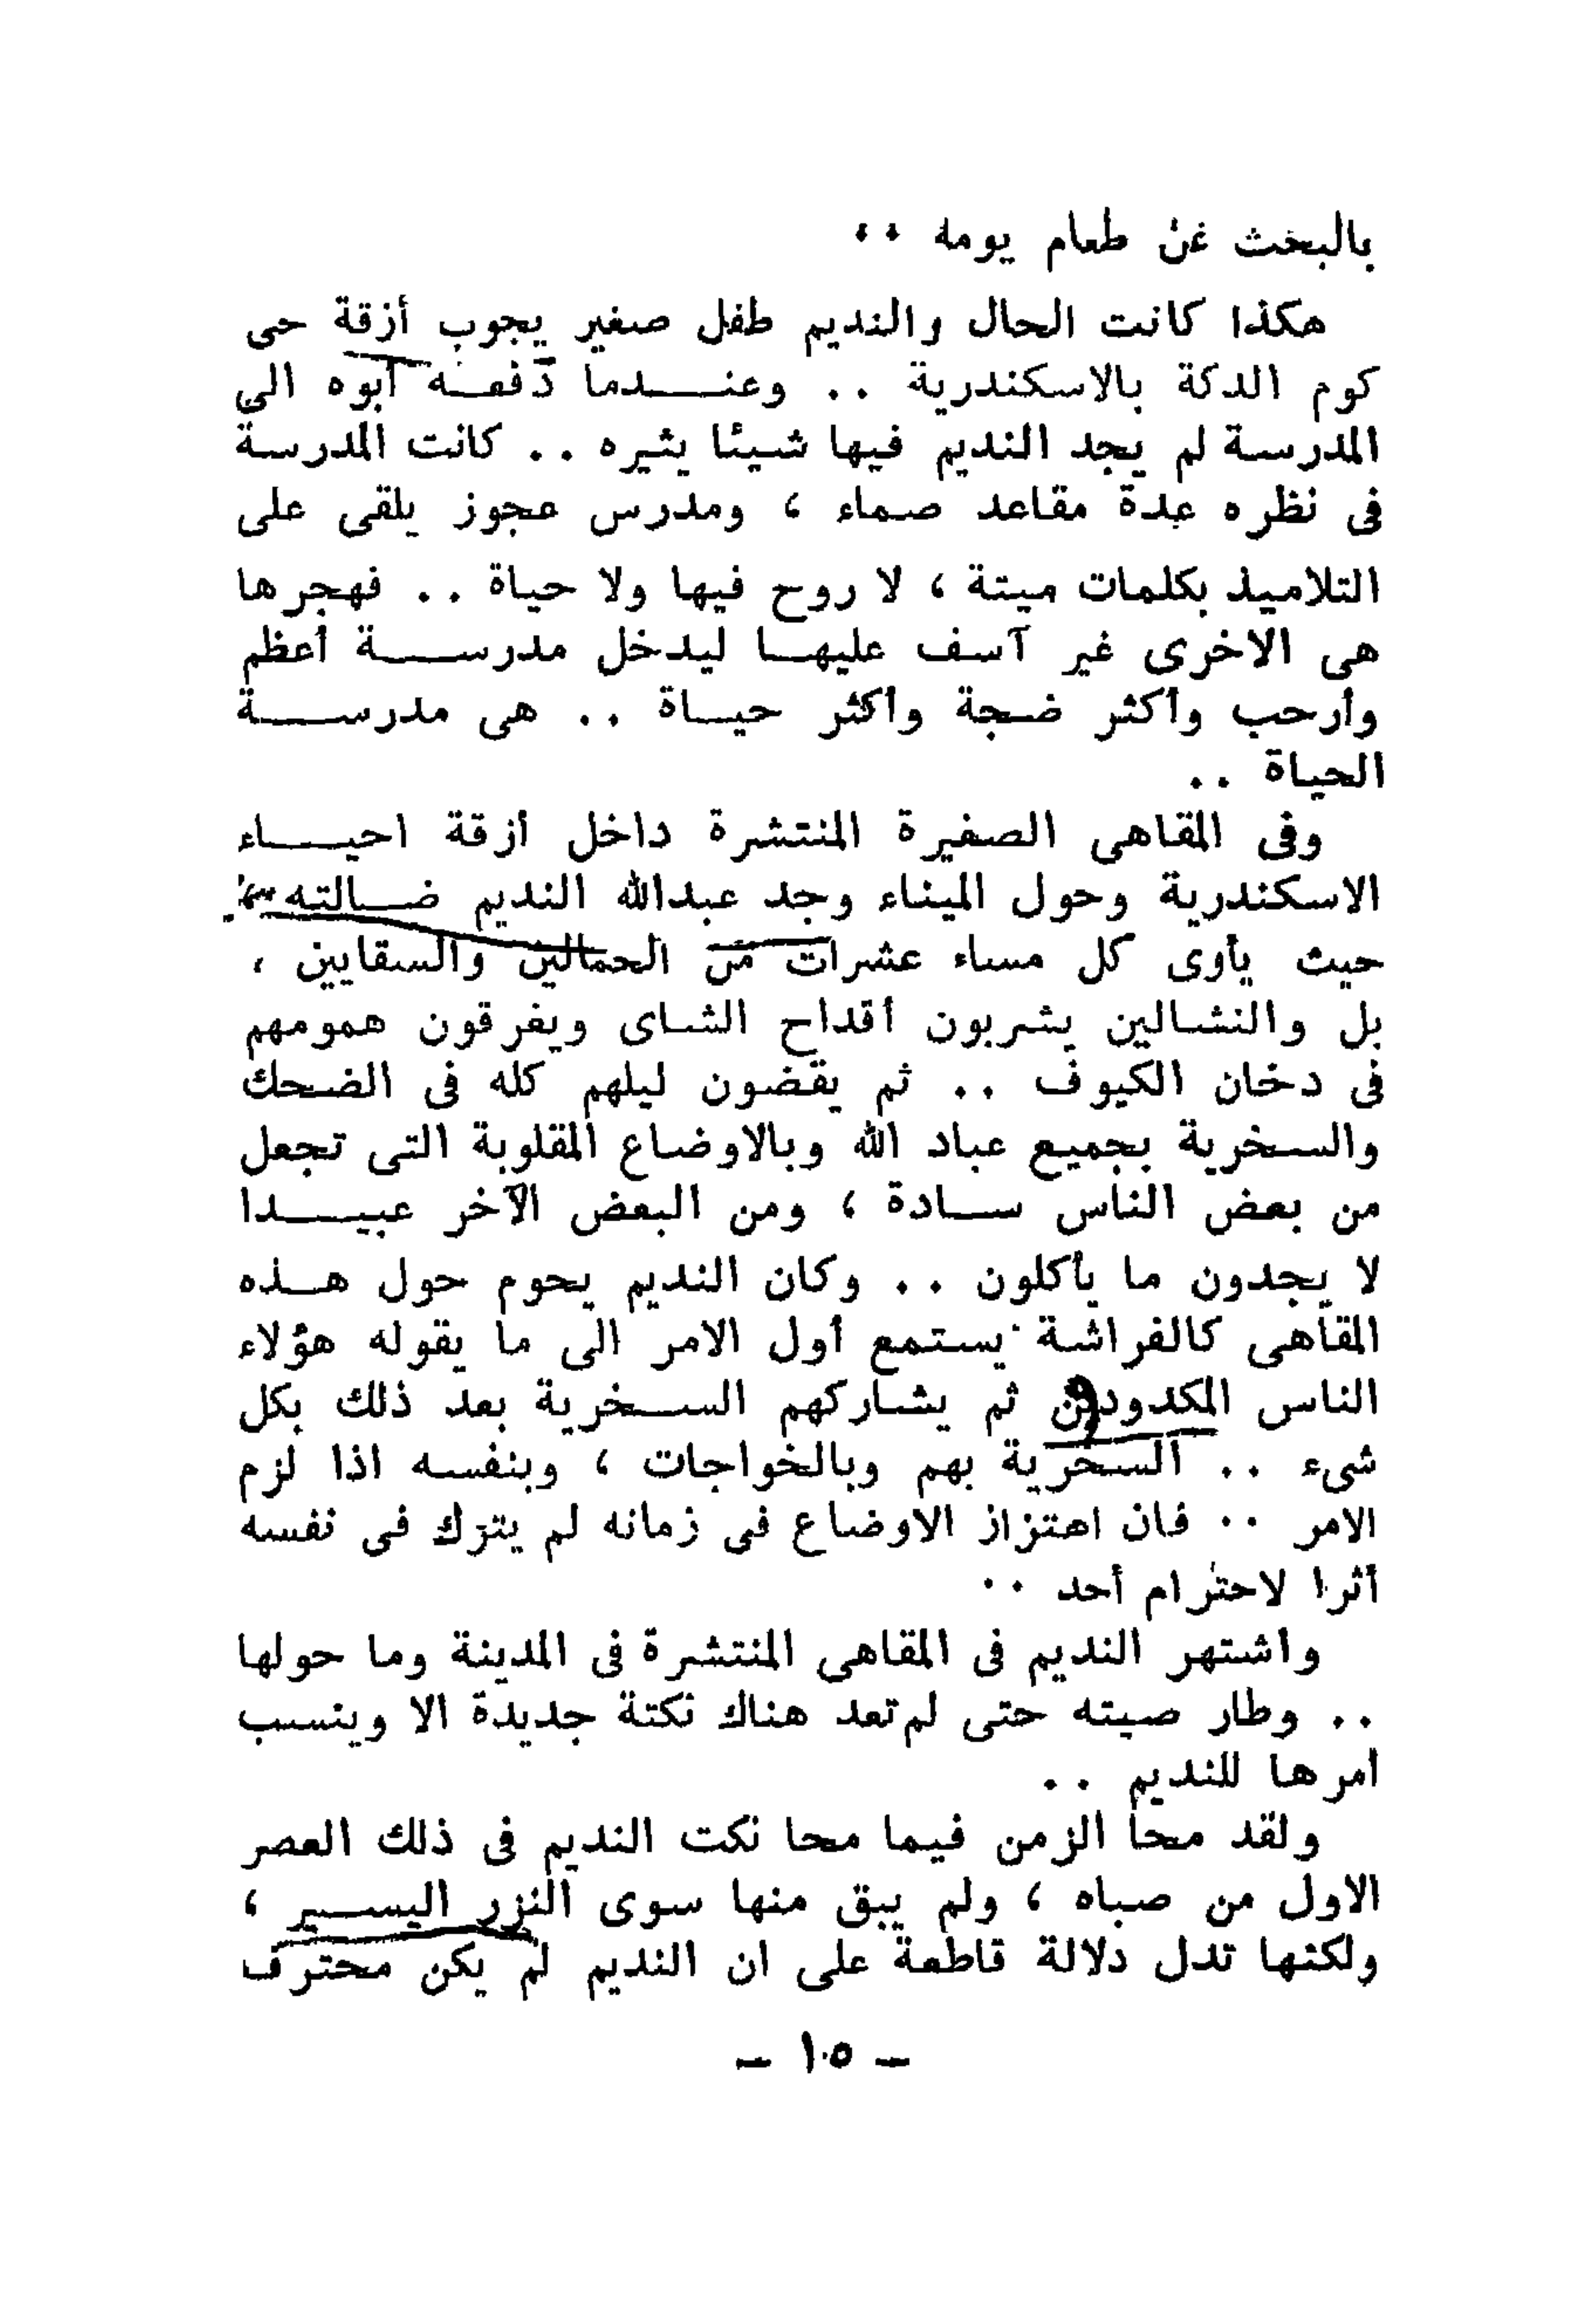 بالبحث عن طعام يومه ..
هكذا كانت الحال والنديم طفل صغير يجوب أزقة حى
كوم الدكة بالاسكندرية .. وعندما دفعه أبوه الى
المدرسة لم يجد النديم فيها شيئا يثيره .. كانت المدرسة
فى نظره عدة مقاعد صماء ، ومدرس عجوز يلقى على
التلاميذ بكلمات ميتة ، لا روح فيها ولا حياة .. فهجرها
هى الاخرى غير آسف عليها ليدخل مدرسة أعظم
وأرحب وأكثر ضجة وأكثر حياة .. هى مدرسة
الحياة ..
وفى المقاهى الصغيرة المنتشرة داخل أزقة احياء
الاسكندرية وحول الميناء وجد عبدالله النديم ضالته
حيث يأوى كل مساء عشرات من الحمالين والسقايين ،
بل والنشالين يشربون أقداح الشاى ويغرقون همومهم
فى دخان الكيوف .. ثم يقضون ليلهم كله فى الضحك
والسخرية بجميع عباد الله وبالاوضاع المقلوبة التى تجعل
من بعض الناس سادة ، ومن البعض الآخر عبيدا
لا يجدون ما يأكلون .. وكان النديم يحوم حول هذه
المقاهى كالفراشة يستمع أول الامر الى ما يقوله هؤلاء
الناس المكدودون ثم يشاركهم السخرية بعد ذلك بكل
شىء .. السخرية بهم وبالخواجات ، وبنفسه اذا لزم
الامر .. فان اهتزاز الاوضاع فى زمانه لم يترك فى نفسه
أثرا لاحترام أحد ..
واشتهر النديم فى المقاهى المنتشرة فى المدينة وما حولها
.. وطار صيته حتى لم تعد هناك نكتة جديدة الا وينسب
أمرها للنديم ..
ولقد محا الزمن فيما محا نكت النديم فى ذلك العصر
الاول من صباه ، ولم يبق منها سوى النزر اليسير ،
ولكنها تدل دلالة قاطعة على ان النديم لم يكن محترف
– ١٠٥ –